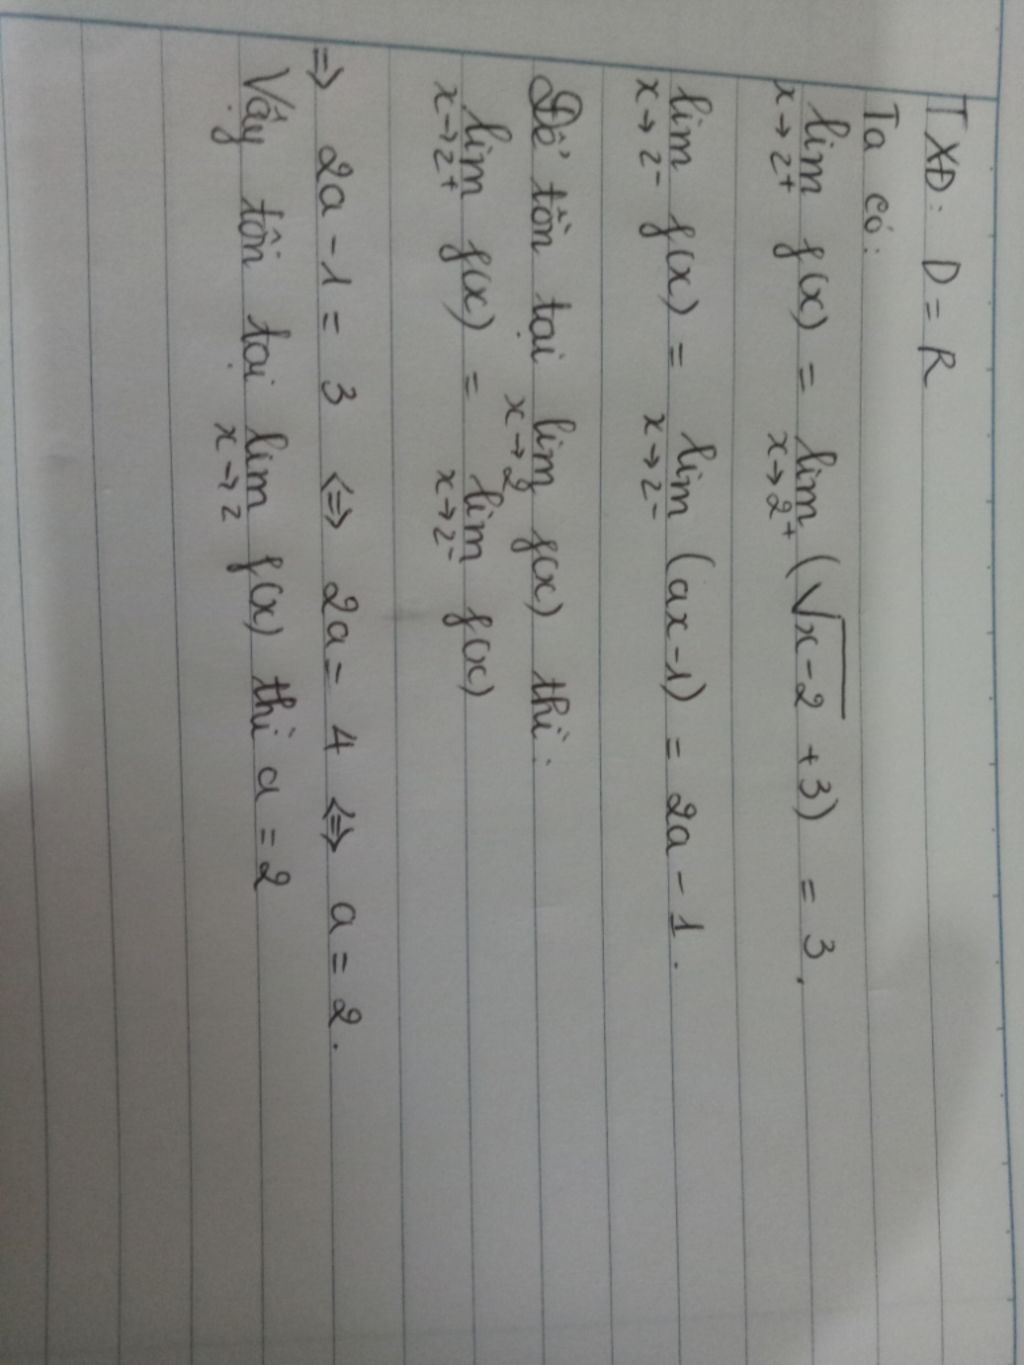 TXĐ: D = R
Ta có:
lim x→2+ f(x) = lim x→2+ (√x-2 +3) = 3.
lim x→2- f(x) = lim x→2- (ax-1) = 2a - 1.
Để tồn tại lim x→2 f(x) thì:
lim x→2+ f(x) = lim x→2- f(x)
=> 2a - 1 = 3 <=> 2a = 4 <=> a = 2.
Vậy tồn tại lim x→2 f(x) thì a = 2